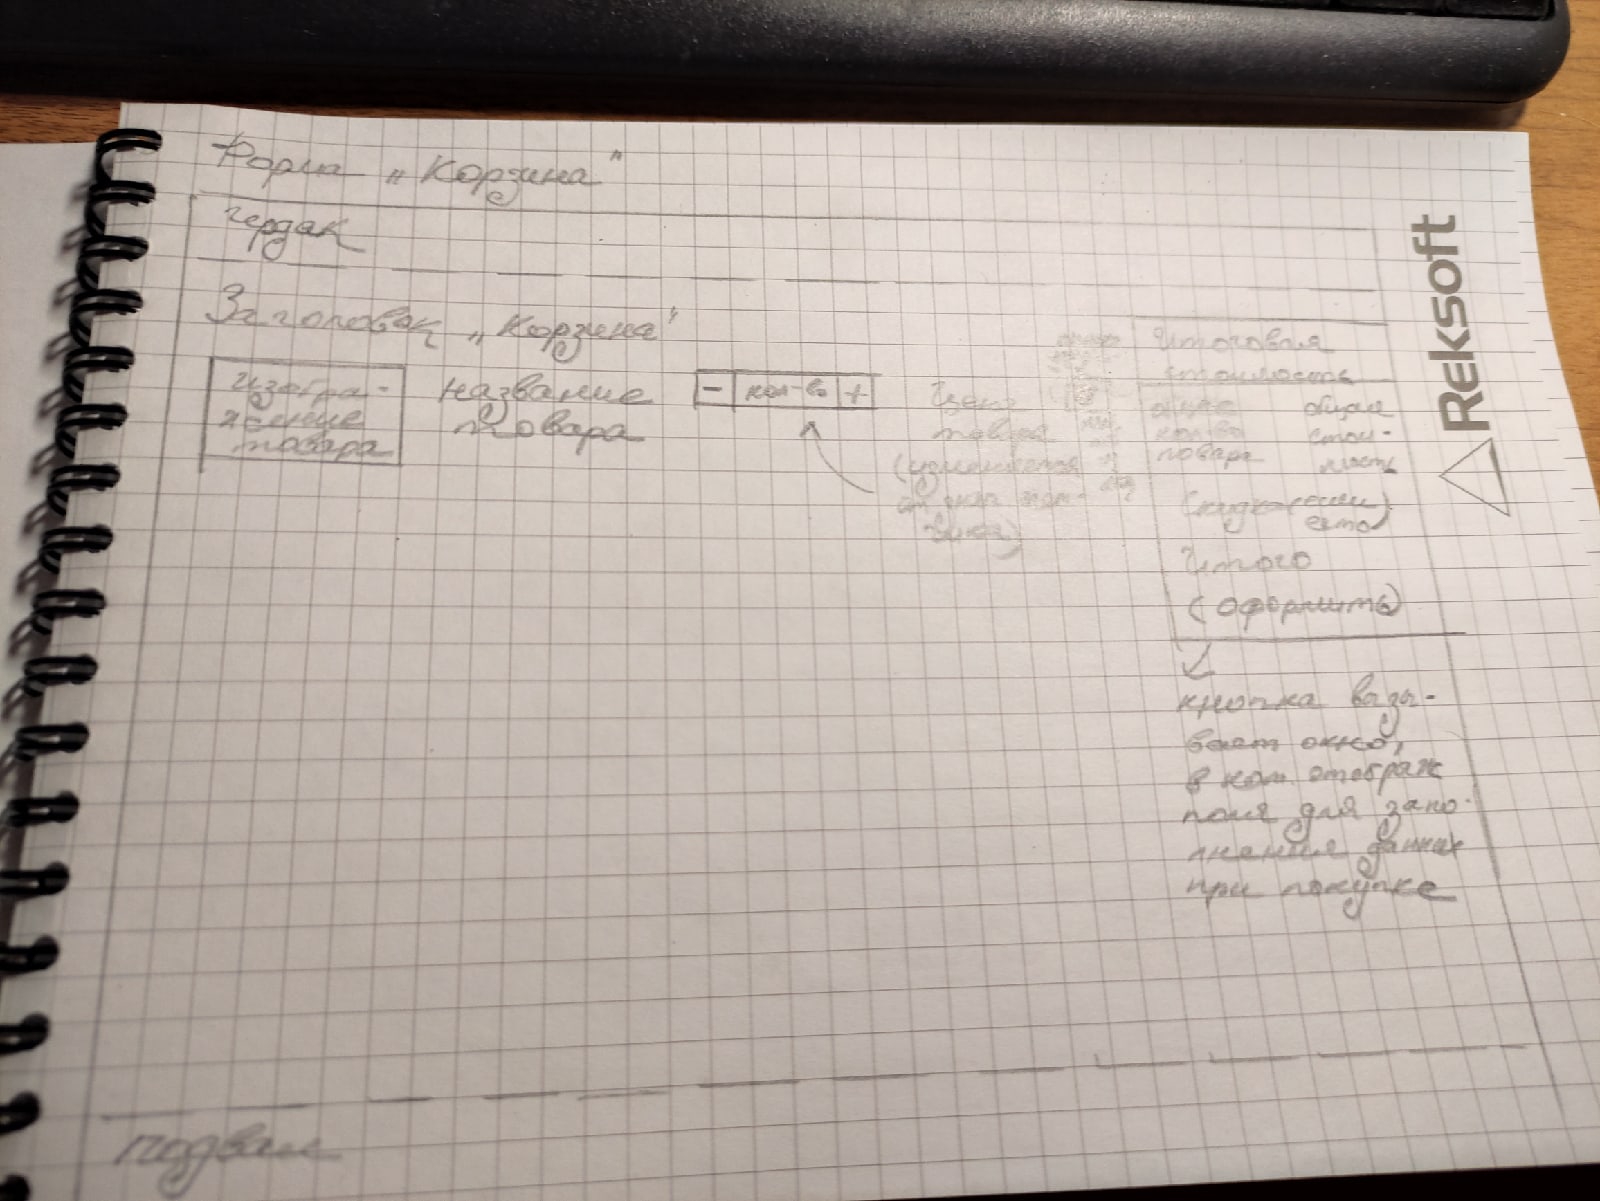 Форма „Корзина"
Чердак
Заголовок „Корзина"
Изобра-
жение
товара
Название
товара
- кол-во +
Цена
товара
(изменяется
от
Итоговая
стоимость
общее
кол-во
товара
общая
стои-
мость
(скидка если
есть)
Итого
(Оформить)
кнопка вызы-
вает окно,
в кот. отображ
поля для запо-
лнения данных
при покупке
подвал
Reksoft